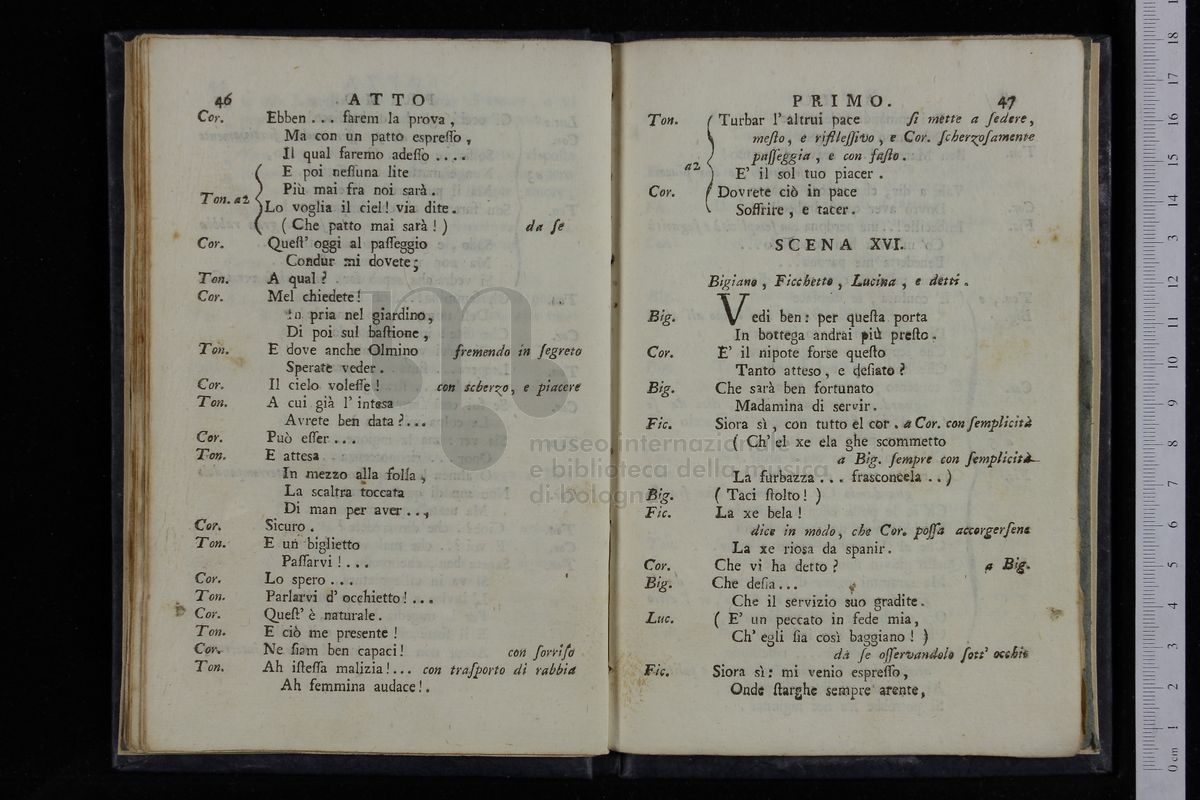 46 ATTO
Cor. Ebben... farem la prova,
Ma con un patto espreſſo,
Il qual faremo adeſſo....
E poi neſſuna lite
Più mai fra noi sarà.
Ton. a2 Lo voglia il ciel! via dite.
(Che patto mai sarà!) da ſe
Cor. Queſt' oggi al paſſeggio
Condur mi dovete;
Ton. A qual?
Cor. Mel chiedete!
In pria nel giardino,
Di poi sul baſtione,
Ton. E dove anche Olmino fremendo in ſegreto
Sperate veder.
Cor. Il cielo voleſſe! con scherzo, e piacere
Ton. A cui già l' intesa
Avrete ben data?...
Cor. Può eſſer...
Ton. E attesa
In mezzo alla folla,
La scaltra toccata
Di man per aver...,
Cor. Sicuro.
Ton. E un biglietto
Paſſarvi!...
Cor. Lo spero...
Ton. Parlarvi d' occhietto!...
Cor. Queſt' è naturale.
Ton. E ciò me presente!
Cor. Ne ſiam ben capaci! con ſorriſo
Ton. Ah iſteſſa malizia!... con traſporto di rabbia
Ah femmina audace!.
PRIMO. 47
Ton. Turbar l' altrui pace ſi mette a ſedere,
meſto, e rifleſſivo, e Cor. ſcherzoſamente
paſſeggia, e con faſto.
a2 E' il sol tuo piacer.
Cor. Dovrete ciò in pace
Soffrire, e tacer.
SCENA XVI.
Bigiano, Ficchetto, Lucina, e detti.
Big. Vedi ben: per queſta porta
In bottega andrai più preſto.
Cor. E' il nipote forse queſto
Tanto atteso, e deſiato?
Big. Che sarà ben fortunato
Madamina di servir.
Fic. Siora sì, con tutto el cor. a Cor. con ſemplicità
(Ch' el xe ela ghe scommetto
a Big. ſempre con ſemplicità
La furbazza... frasconcela..)
Big. (Taci ſtolto!)
Fic. La xe bela!
dice in modo, che Cor. poſſa accorgerſene
La xe riosa da spanir.
Cor. Che vi ha detto? a Big.
Big. Che deſia...
Che il servizio suo gradite.
Luc. (E' un peccato in fede mia,
Ch' egli ſia così baggiano!)
da ſe oſſervandolo ſott' occhio
Fic. Siora sì: mi venio espreſſo,
Onde ſtarghe sempre arente,
museo internazionale
e biblioteca della musica
di bologna
0 cm 1 2 3 4 5 6 7 8 9 10 11 12 13 14 15 16 17 18